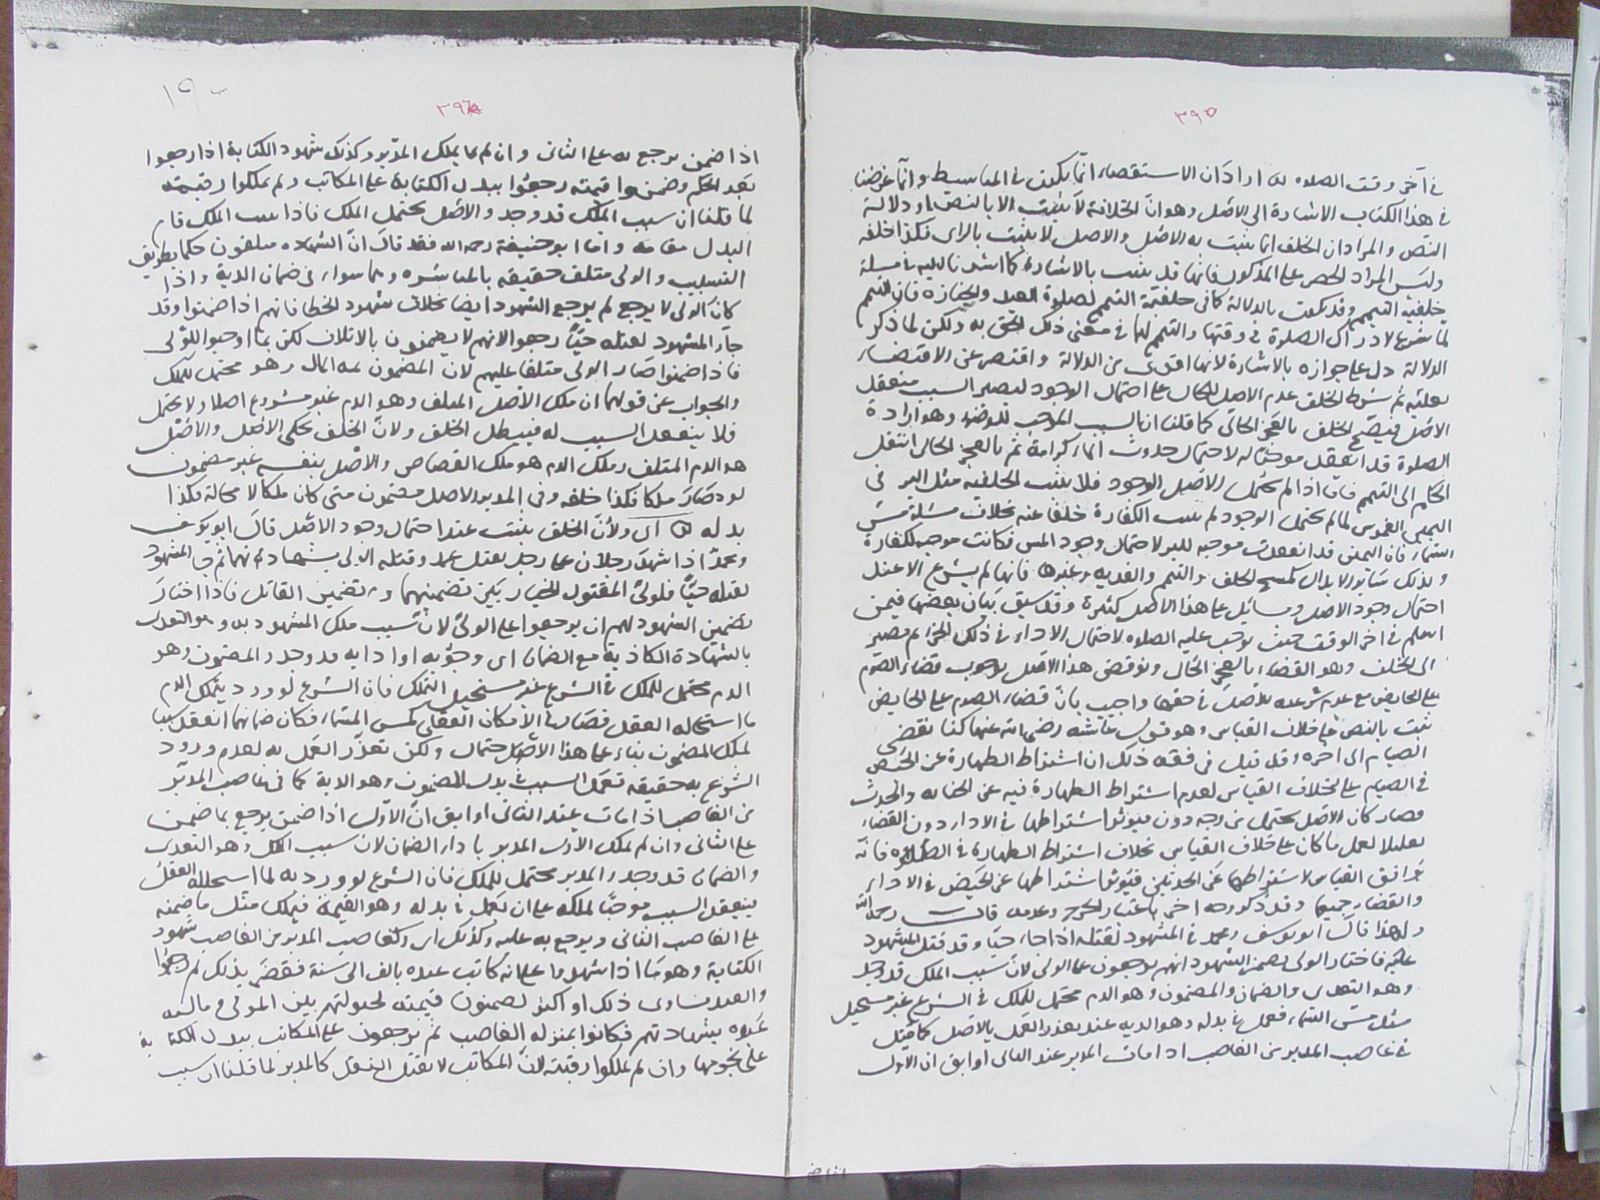 ٣٩٥
في آخر وقت الصلاة له اراد ان الاستقصاء انما يكون في المباسيط وانما غرضنا
في هذا الكتاب الاشارة الى الاصل وهو ان الخلافة لا تثبت الا بالنص او دلالة
النص والمراد ان الخلف انما يثبت به الاصل والاصل لا يثبت بالراى فكذا خلفه
وليس المراد الحصر على المذكور فانها قد تثبت بالاشارة كما اشرنا اليه في مسئلة
خلفية التيمم وقد يكون بالدلالة كما في خلفية التيمم لصلوة العيد والجنازة فان التيمم
لما شرع لادراك الصلوة في وقتها والتيمم لها في معنى ذلك الحق به ولكن لما ذكر
الدلالة دل على جوازه بالاشارة لانها اقوى من الدلالة واقتصر عن الاقتضاء
لعلته ثم شرط الخلف عدم الاصل للحال على احتمال الوجود ليصير السبب منعقدا
الاصل فيصح الخلف بالعجز الحالي كما قلنا ان السبب الموجب للوضوء وهو ارادة
الصلوة قد انعقد موجبا له لاحتمال حدوث الماء كرامة ثم بالعجز الحالي انتقل
الحكم الى التيمم فاما اذا لم يحتمل الاصل الوجود فلا يثبت الخلفية مثل البر في
اليمين الغموس لما لم يحتمل الوجود لم تثبت الكفارة خلفا عنه بخلاف مسئلة مس
السماء فان اليمين قد انعقدت موجبة للبر لاحتمال وجود المس فكانت موجبة للكفارة
وكذلك سائر الابدال كمسح الخف والتيمم والفدية وغيرها فانها لم يشرع الا عند
احتمال وجود الاصل ومسائل على هذا الاصل كثيرة وقد سبق بيان بعضها فيمن
اسلم في اخر الوقت حيث توجب عليه الصلاة لاحتمال الاداء في ذلك الجزء ثم مصير
الى الخلف وهو القضاء بالعجز الحال ونوقض هذا الاصل بوجوب قضاء الصوم
على الحايض مع عدم شرعية الاصل في حقها واجيب بان قضاء الصوم على الحايض
ثبت بالنص على خلاف القياس وهو قول عائشة رضي الله عنها كنا نقضي
الصيام الى اخره وقد قيل في فقه ذلك ان اشتراط الطهارة عن الحيض
في الصيام على خلاف القياس لعدم اشتراط الطهارة فيه عن الجنابة والحدث
فصار كان الاصل محتمل من وجه دون فيؤثر اشتراطها في الاداء دون القضاء
تقليلا لعمل ما كان على خلاف القياس بخلاف اشتراط الطهارة في الصلوة فانه
يوافق القياس لاشتراطها عن الحدثين فيؤثر اشتراطها عن الحيض في الاداء
والقضاء جميعا وقد ذكر وجه اخر باعتبار الحرج وعدمه قال رحمه الله
ولهذا قال ابو يوسف ومحمد في المشهود لقتله اذا جاء حيا وقد قتل المشهود
عليه فاختار الولي تضمين الشهود انهم يرجعون على الولي لان سبب الملك قد وجد
وهو التعدي والضمان والمضمون وهو الدم محتمل للملك في الشرع غير مستحيل
مثل مس السماء فعمل في بدله وهو الدية عند تعذر العمل بالاصل كما قيل
في غاصب المدبر من الغاصب اذا مات المدبر عند الثاني او ابق ان الاول
٣٩٦
١٩
اذا ضمن يرجع به على الثاني وان لم يملك المدبر وكذلك شهود الكتابة اذا رجعوا
بعد الحكم وضمنوا قيمته رجعوا ببدل الكتابة على المكاتب ولم يملكوا رقبته
لما قلنا ان سبب الملك قد وجد والاصل يحتمل الملك فاذا لم يثبت الملك قام
البدل مقامه واما ابو حنيفة رحمه الله فقد قال ان الشهادة متلفون حكما بطريق
التسبيب والولي متلف حقيقة بالمباشرة وهما سواء في ضمان الدية واذا
كان الولي لا يرجع لم يرجع الشهود ايضا بخلاف شهود الخطا فانهم اذا ضمنوا وقد
جاء المشهود لقتله حيا رجعوا لانهم لا يضمنون بالاتلاف لكن بما اوجبوا للولي
فاذا ضمنوا صار الولي متلفا عليهم لان المضمون به المال وهو محتمل للملك
والجواب عن قولهما ان ملك الاصل المتلف وهو الدم غير مشروع اصلا ولا يحتمل
فلا ينعقد السبب له فيبطل الخلف ولان الخلف يحكي الاصل والاصل
هو الدم المتلف وملك الدم هو ملك القصاص والاصل بنفسه غير مضمون
لو صار ملكا فكذا خلفه وفي المدبر الاصل مضمون متى كان ملكا لا محالة فكذا
بدله اى ولان الخلف يثبت عند احتمال وجود الاصل قال ابو يوسف
ومحمد اذا شهد رجلان على رجل بقتل عمد وقتله الولي بشهادتهما ثم جاء المشهود
لقتله حيا فلولي المقتول الخيار بين تضمينهما وتضمين القاتل فاذا اختار
تضمين الشهود لهم ان يرجعوا على الولي لان سبب ملك المشهود به وهو التعدي
بالشهادة الكاذبة مع الضمان اى وجوبه اوادايه قد وجد والمضمون وهو
الدم محتمل للملك في الشرع غير مستحيل التملك فان الشرع لو ورد بتملك الدم
ما استحاله العقل فصار في الامكان العقلي كمس السماء فكان ضمانهما انعقد سببا
لملك المضمون بناء على هذا الاحتمال ولكن تعذر العمل به لعدم ورود
الشرع به حقيقة فعمل السبب في بدل المضمون وهو الدية كما في غاصب المدبر
من الغاصب اذا مات عند الثاني او ابق ان الاول اذا ضمن يرجع بما ضمن
على الثاني وان لم يملك الاول المدبر باداء الضمان لان سبب الملك وهو التعدي
والضمان قد وجد والمدبر محتمل للملك فان الشرع لو ورد به لما استحاله العقل
فينعقد السبب موجبا لملكه على ان يعمل في بدله وهو القيمة فيملك مثل ما ضمنه
على الغاصب الثاني ويرجع به عليه وكذلك اى وكغاصب المدبر من الغاصب شهود
الكتابة وهو ما اذا شهدوا على انه كاتب عبده بالف الى سنة فقضى بذلك ثم رجعوا
والعبد يساوي ذلك او اكثر يضمنون قيمته لحيلولتهم بين المولى ومالية
عبده بشهادتهم فكانوا بمنزلة الغاصب ثم يرجعون على المكاتب ببدل الكتابة
على نجومها وان لم يملكوا رقبته لان المكاتب لا يقبل النقل كالمدبر لما قلنا ان سبب